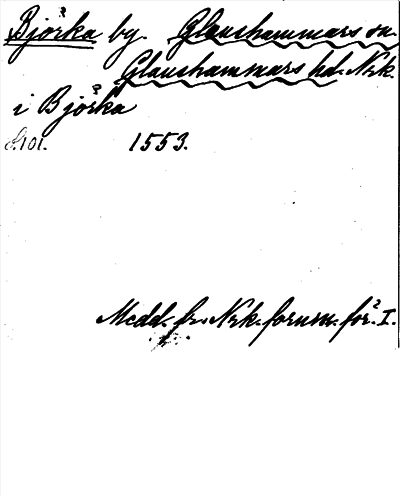 Björka by. Glanshammars sn.
Glanshammars hd. Nrk.
i Björka
s. 101. 1553.
Medd. fr. Nrk. fornm. för. I.